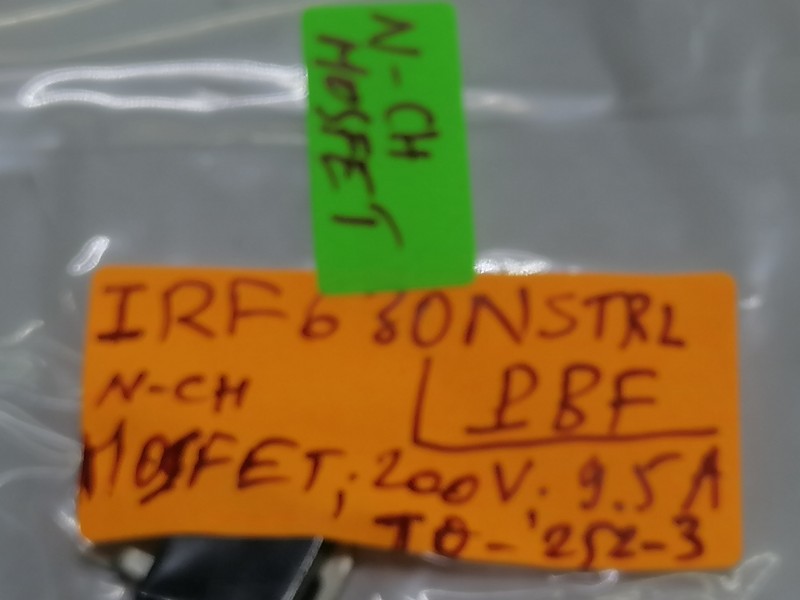 N-CH
MOSFET
IRF630NSTRL
PBF
N-CH
MOSFET, 200V. 9.5A
TO-252-3